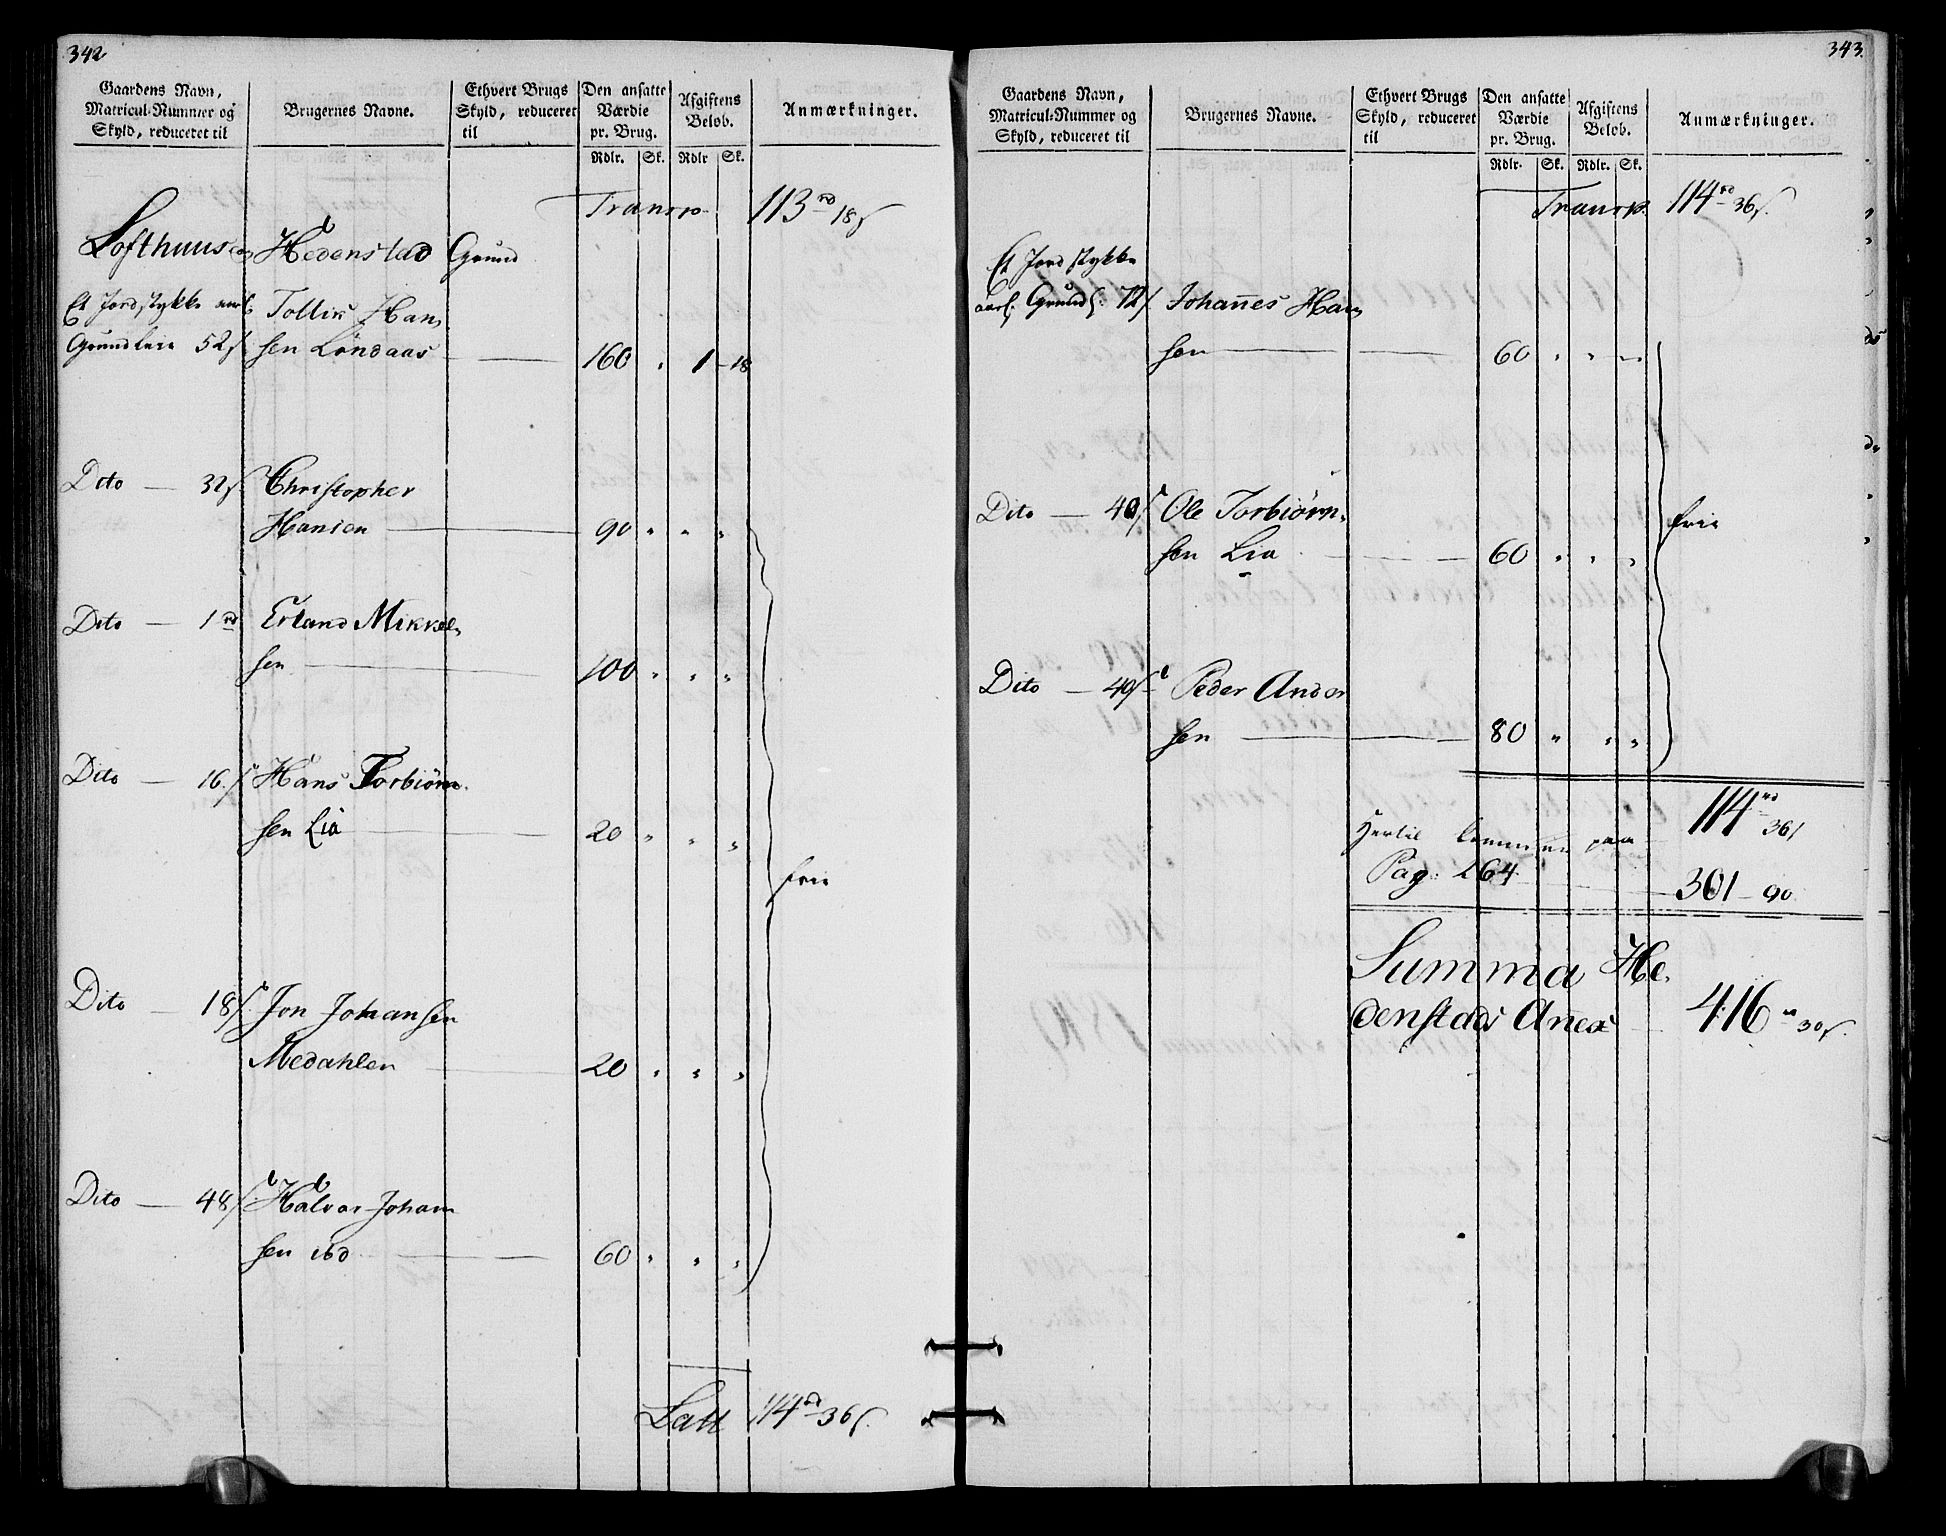 342
Gaardens Navn,
Matricul-Nummer og
Skyld, reduceret til
Brugernes Navne.
Ethvert Brugs
Skyld, reduceret
til
Den ansatte
Værdie
pr. Brug.
Afgiftens
Beløb.
Anmærkninger.
Rdlr. Sk. Rdlr Sk.
Transp 113 rd 18 s
Lofthuus Hedenstad Grund
Et Jordstykke aarl Tollik Han,
Grundleie 52 s. sen Londaas — 160 " 1 - 18
Dito — 32 s. Christopher
Hansen — 90 " " "
Dito — 1 rd Erland Mikkel,
sen — 100 " " "
Dito — 16 s Hans Torbiørn.
sen Lia — 20 " " "
frie
Dito — 18 s Jon Johansen
Medahlen — 20 " " "
Dito — 48 s Halvor Johan
sen ibd — 60 " " "
Latt 114 rd 36 s.
343.
Gaardens Navn,
Matricul-Nummer og
Skyld, reduceret til
Brugernes Navne.
Ethvert Brugs
Skyld, reduceret
til
Den ansatte
Værdie
pr. Brug.
Afgiftens
Beløb.
Anmærkninger.
Rdlr. Sk. Rdlr. Sk.
Transp. 114 rd 36 s.
Et Jordstykke
aarl. Grundl: 72 s Johañes Han,
sen — 60 " " "
Dito — 40 s Ole Torbiørn,
sen Lia — 60 " " "
frie
Dito — 40 s Peder Ander
sen — 80 " " "
114 rd 36 s
Hertil kommen paa
Pag: 264 — 301 - 90.
Summa He,
denstads Añex — 416 rd 30 s.